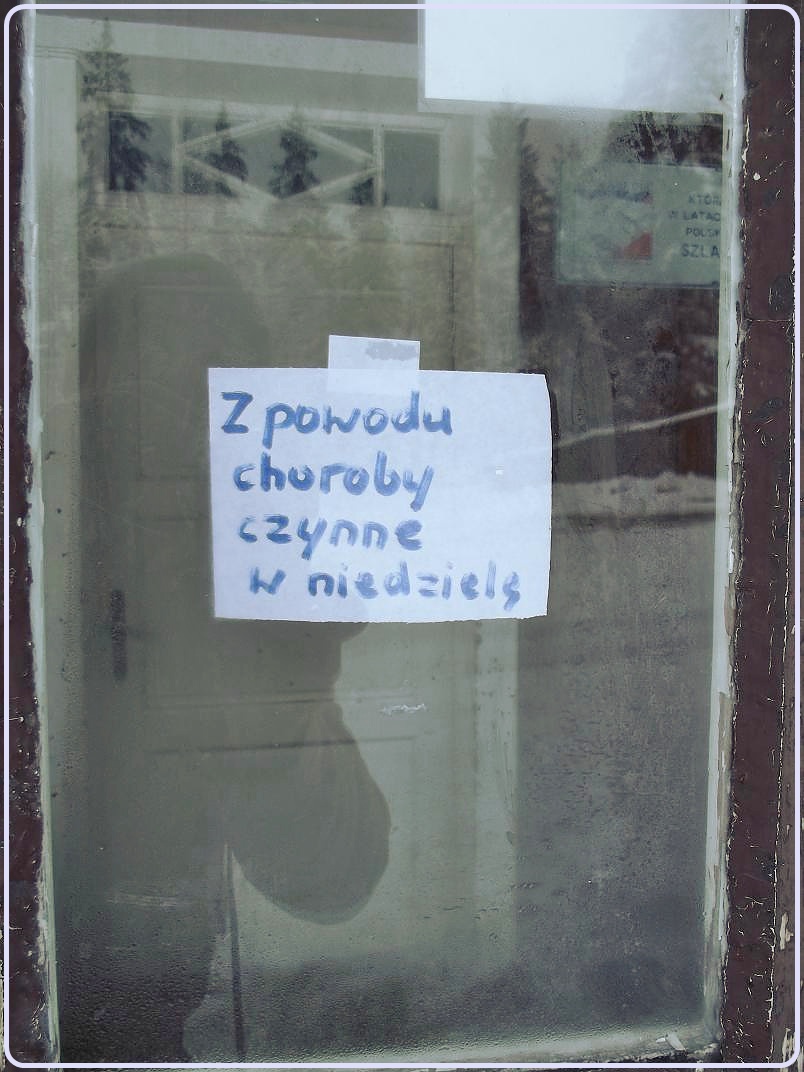 Z powodu
choroby
czynne
w niedzielę
KTÓR
W LATAC
POLSK
SZLA